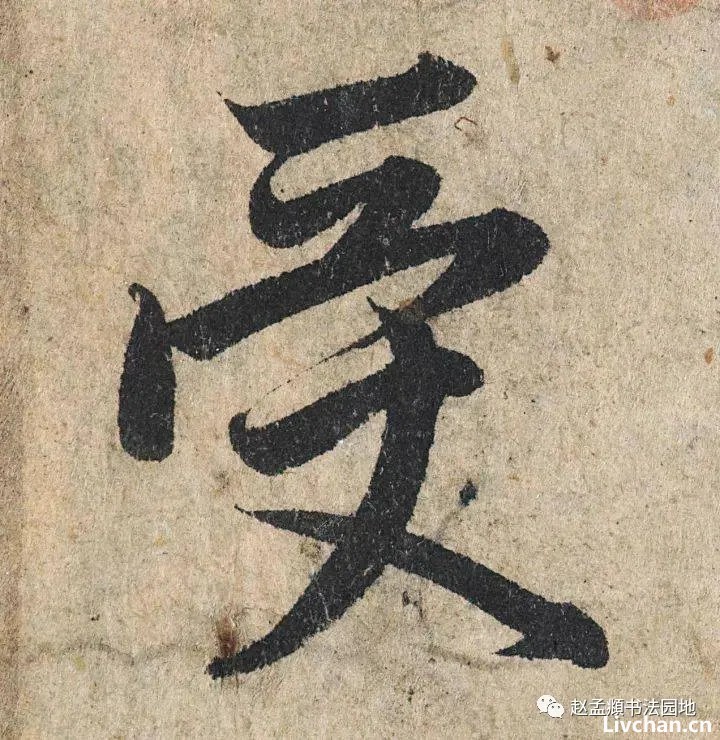 受
赵孟頫书法园地
Livchan.cn